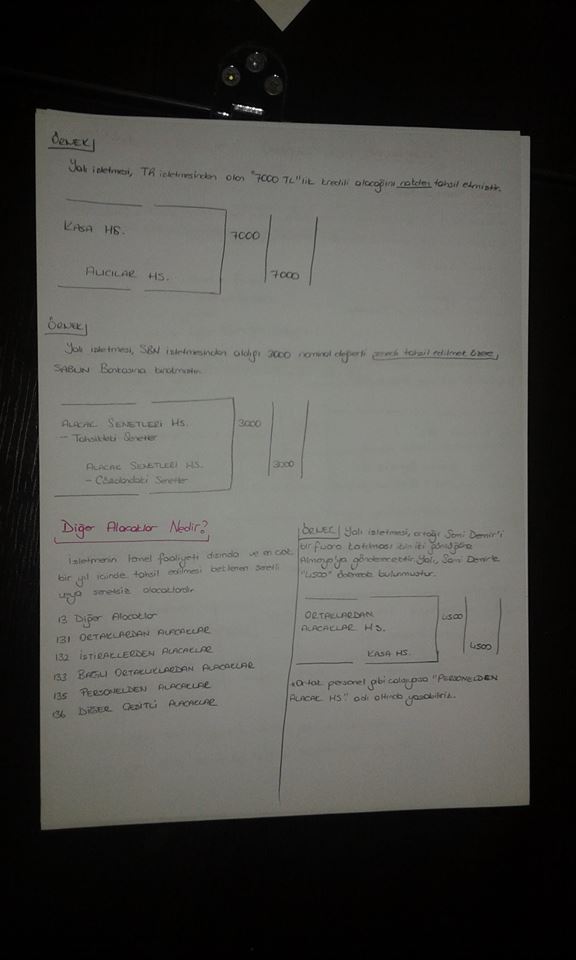 ÖRNEK
Yalı işletmesi, TA işletmesinden olan "7000 TL"lik kredili alacağını nakden tahsil etmiştir.
KASA HS. 7000
ALICILAR HS. 7000
ÖRNEK
Yalı işletmesi, SBN işletmesinden aldığı 3000 nominal değerli senedi tahsil edilmek üzere,
SABUN Bankasına bırakmıştır.
ALACAK SENETLERİ HS. 3000
- Tahsildeki Senetler
ALACAK SENETLERİ HS. 3000
- Cüzdandaki Senetler
Diğer Alacaklar Nedir?
İşletmenin temel faaliyeti dışında ve en çok
bir yıl içinde tahsil edilmesi beklenen senetli
veya senetsiz alacaklardır.
13 Diğer Alacaklar
131 ORTAKLARDAN ALACAKLAR
132 İŞTİRAKLERDEN ALACAKLAR
133 BAĞLI ORTAKLIKLARDAN ALACAKLAR
135 PERSONELDEN ALACAKLAR
136 DİĞER ÇEŞİTLİ ALACAKLAR
ÖRNEK Yalı işletmesi, ortağı Sami Demir'i
bir fuara katılması için iki günlüğüne
Almanya'ya göndermektedir. Yalı, Sami Demir'e
"4500" ödemede bulunmuştur.
ORTAKLARDAN
ALACAKLAR HS. 4500
KASA HS. 4500
* Ortak personel gibi çalışıyorsa "PERSONELDEN
ALACAK HS." adı altında yazabiliriz.